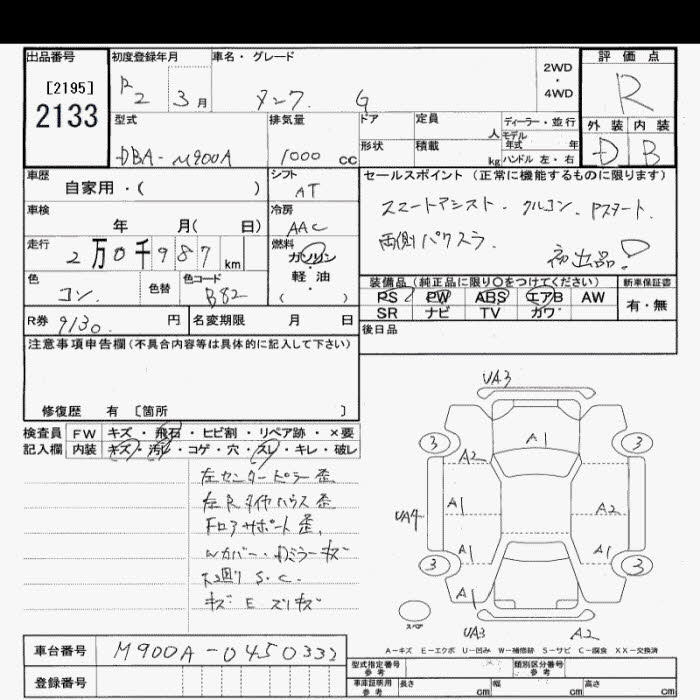 出品番号 初度登録年月 車名・グレード 評価点
[2195]
2133
R2 3月 タンク G 2WD・4WD R
型式 排気量 ドア 定員 ディーラー・並行 外装 内装
人 モデル年式 年
DBA-M900A 1000 cc 形状 積載 kg ハンドル 左・右 D B
車歴 シフト セールスポイント (正常に機能するものに限ります)
自家用・( ) AT
スマートアシスト・クルコン・Pスタート.
車検 冷房
年 月( 日) AAC
両側パワスラ. 初出品!
走行 燃料
2万0千987km ガソリン・軽油
( )
色 色替 色コード
コン. B82
装備品 (純正品に限り○をつけてください) 新車保証書
PS PW ABS エアB AW 有・無
SR ナビ TV カワ
R券 9130 円 名変期限 月 日 後日品
注意事項申告欄(不具合内容等は具体的に記入して下さい)
修復歴 有 [箇所 ]
検査員 FW キズ・飛石・ヒビ割・リペア跡・×要
記入欄 内装 キズ・汚レ・コゲ・穴・スレ・キレ・破レ
左センターピラー歪
左Rタイヤハウス歪
フロアサポート歪.
Wカバー・ミラーキズ
下廻り S.C.
キズ E ズリキズ
UA3
3 A1 3
A2
A1 A2
UA4
A1 A1
3 3
A1
スペア
UA3 A2
A-キズ E-エクボ U-凹み W-補修跡 S-サビ C-腐食 XX-交換済
車台番号 M900A-0450332
登録番号
型式指定番号 参考 類別区分番号 参考
車庫証明用 参考 長さ cm 幅 cm 高さ cm